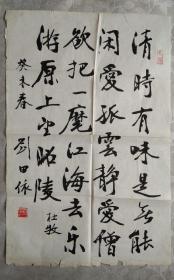 清時有味是無能
閑愛孤雲靜愛僧
欲把一麾江海去樂
游原上望昭陵
杜牧
癸未春
劉田依